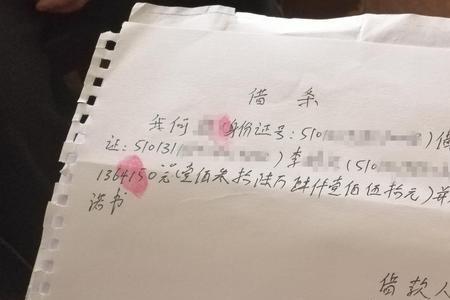 借 条
我何 (身份证号:510 )借
证:5101311 )李 (510
1364150元(壹佰叁拾陆万肆仟壹佰伍拾元)并
诺书
借款人